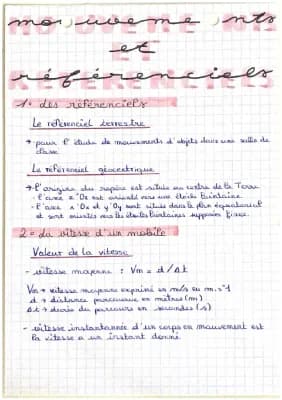 mouvements
et
référenciels
1- des référenciels
Le référenciel terrestre
→ pour l'étude de mouvements d'objets dans une salle de
classe
Le référenciel géocentrique
→ l'origine du repère est située au centre de la Terre
- l'axe z'Oz est orienté vers une étoile lointaine
- l'axe x'Ox et y'Oy sont situés dans le plan équatorial
et sont orientés vers les étoiles lointaines supposées fixes.
2- La vitesse d'un mobile
Valeur de la vitesse
- vitesse moyenne : Vm = d/Δt
Vm → vitesse moyenne exprimé en m/s ou m.s-1
d → distance parcourue en mètres (m)
Δt → durée du parcours en secondes (s)
- vitesse instantannée d'un corps en mouvement est
la vitesse a un instant donné.